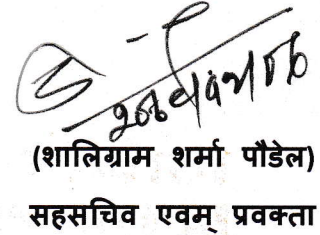 (शालिग्राम शर्मा पौडेल)
सहसचिव एवम् प्रवक्ता